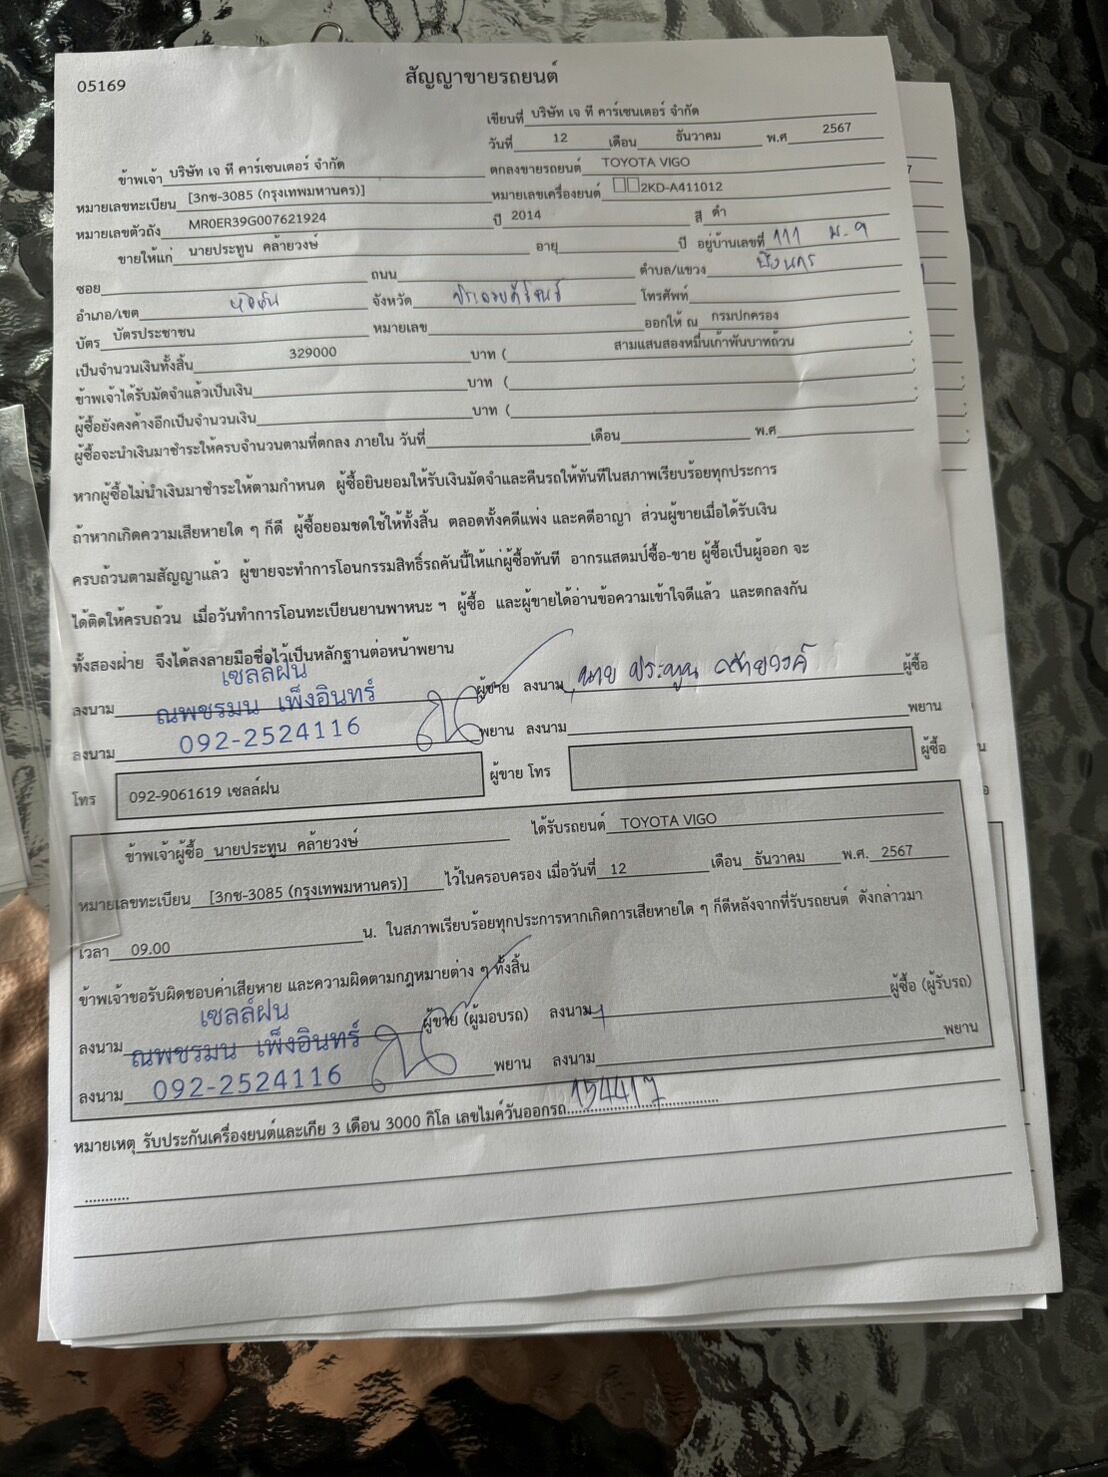 05169
สัญญาขายรถยนต์
เขียนที่ บริษัท เจ ที คาร์เซนเตอร์ จำกัด
วันที่ 12 เดือน ธันวาคม พ.ศ 2567
ข้าพเจ้า บริษัท เจ ที คาร์เซนเตอร์ จำกัด ตกลงขายรถยนต์ TOYOTA VIGO
หมายเลขทะเบียน [3กช-3085 (กรุงเทพมหานคร)] หมายเลขเครื่องยนต์ □□2KD-A411012
หมายเลขตัวถัง MR0ER39G007621924 ปี 2014 สี ดำ
ขายให้แก่ นายประทูน คล้ายวงษ์ อายุ ปี อยู่บ้านเลขที่ 111 ม.9
ซอย ถนน ตำบล/แขวง
อำเภอ/เขต หัวหิน จังหวัด ประจวบคีรีขันธ์ โทรศัพท์
บัตร บัตรประชาชน หมายเลข ออกให้ ณ กรมปกครอง
เป็นจำนวนเงินทั้งสิ้น 329000 บาท ( สามแสนสองหมื่นเก้าพันบาทถ้วน
ข้าพเจ้าได้รับมัดจำแล้วเป็นเงิน บาท (
ผู้ซื้อยังคงค้างอีกเป็นจำนวนเงิน บาท (
ผู้ซื้อจะนำเงินมาชำระให้ครบจำนวนตามที่ตกลง ภายใน วันที่ เดือน พ.ศ
หากผู้ซื้อไม่นำเงินมาชำระให้ตามกำหนด ผู้ซื้อยินยอมให้รับเงินมัดจำและคืนรถให้ทันทีในสภาพเรียบร้อยทุกประการ
ถ้าหากเกิดความเสียหายใด ๆ ก็ดี ผู้ซื้อยอมชดใช้ให้ทั้งสิ้น ตลอดทั้งคดีแพ่ง และคดีอาญา ส่วนผู้ขายเมื่อได้รับเงิน
ครบถ้วนตามสัญญาแล้ว ผู้ขายจะทำการโอนกรรมสิทธิ์รถคันนี้ให้แก่ผู้ซื้อทันที อากรแสตมป์ซื้อ-ขาย ผู้ซื้อเป็นผู้ออก จะ
ได้ติดให้ครบถ้วน เมื่อวันทำการโอนทะเบียนยานพาหนะ ฯ ผู้ซื้อ และผู้ขายได้อ่านข้อความเข้าใจดีแล้ว และตกลงกัน
ทั้งสองฝ่าย จึงได้ลงลายมือชื่อไว้เป็นหลักฐานต่อหน้าพยาน
เซลล์ฝน
ลงนาม ณพชรมน เพ็งอินทร์ ผู้ขาย ลงนาม นาย ประทูน คล้ายวงค์ ผู้ซื้อ
ลงนาม 092-2524116 พยาน ลงนาม พยาน
โทร 092-9061619 เซลล์ฝน ผู้ขาย โทร ผู้ซื้อ
ข้าพเจ้าผู้ซื้อ นายประทูน คล้ายวงษ์ ได้รับรถยนต์ TOYOTA VIGO
หมายเลขทะเบียน [3กช-3085 (กรุงเทพมหานคร)] ไว้ในครอบครอง เมื่อวันที่ 12 เดือน ธันวาคม พ.ศ. 2567
เวลา 09.00 น. ในสภาพเรียบร้อยทุกประการหากเกิดการเสียหายใด ๆ ก็ดีหลังจากที่รับรถยนต์ ดังกล่าวมา
ข้าพเจ้าขอรับผิดชอบค่าเสียหาย และความผิดตามกฎหมายต่าง ๆ ทั้งสิ้น
เซลล์ฝน
ลงนาม ณพชรมน เพ็งอินทร์ ผู้ขาย (ผู้มอบรถ) ลงนาม ผู้ซื้อ (ผู้รับรถ)
ลงนาม 092-2524116 พยาน ลงนาม พยาน
หมายเหตุ รับประกันเครื่องยนต์และเกีย 3 เดือน 3000 กิโล เลขไมค์วันออกรถ 154417
...........